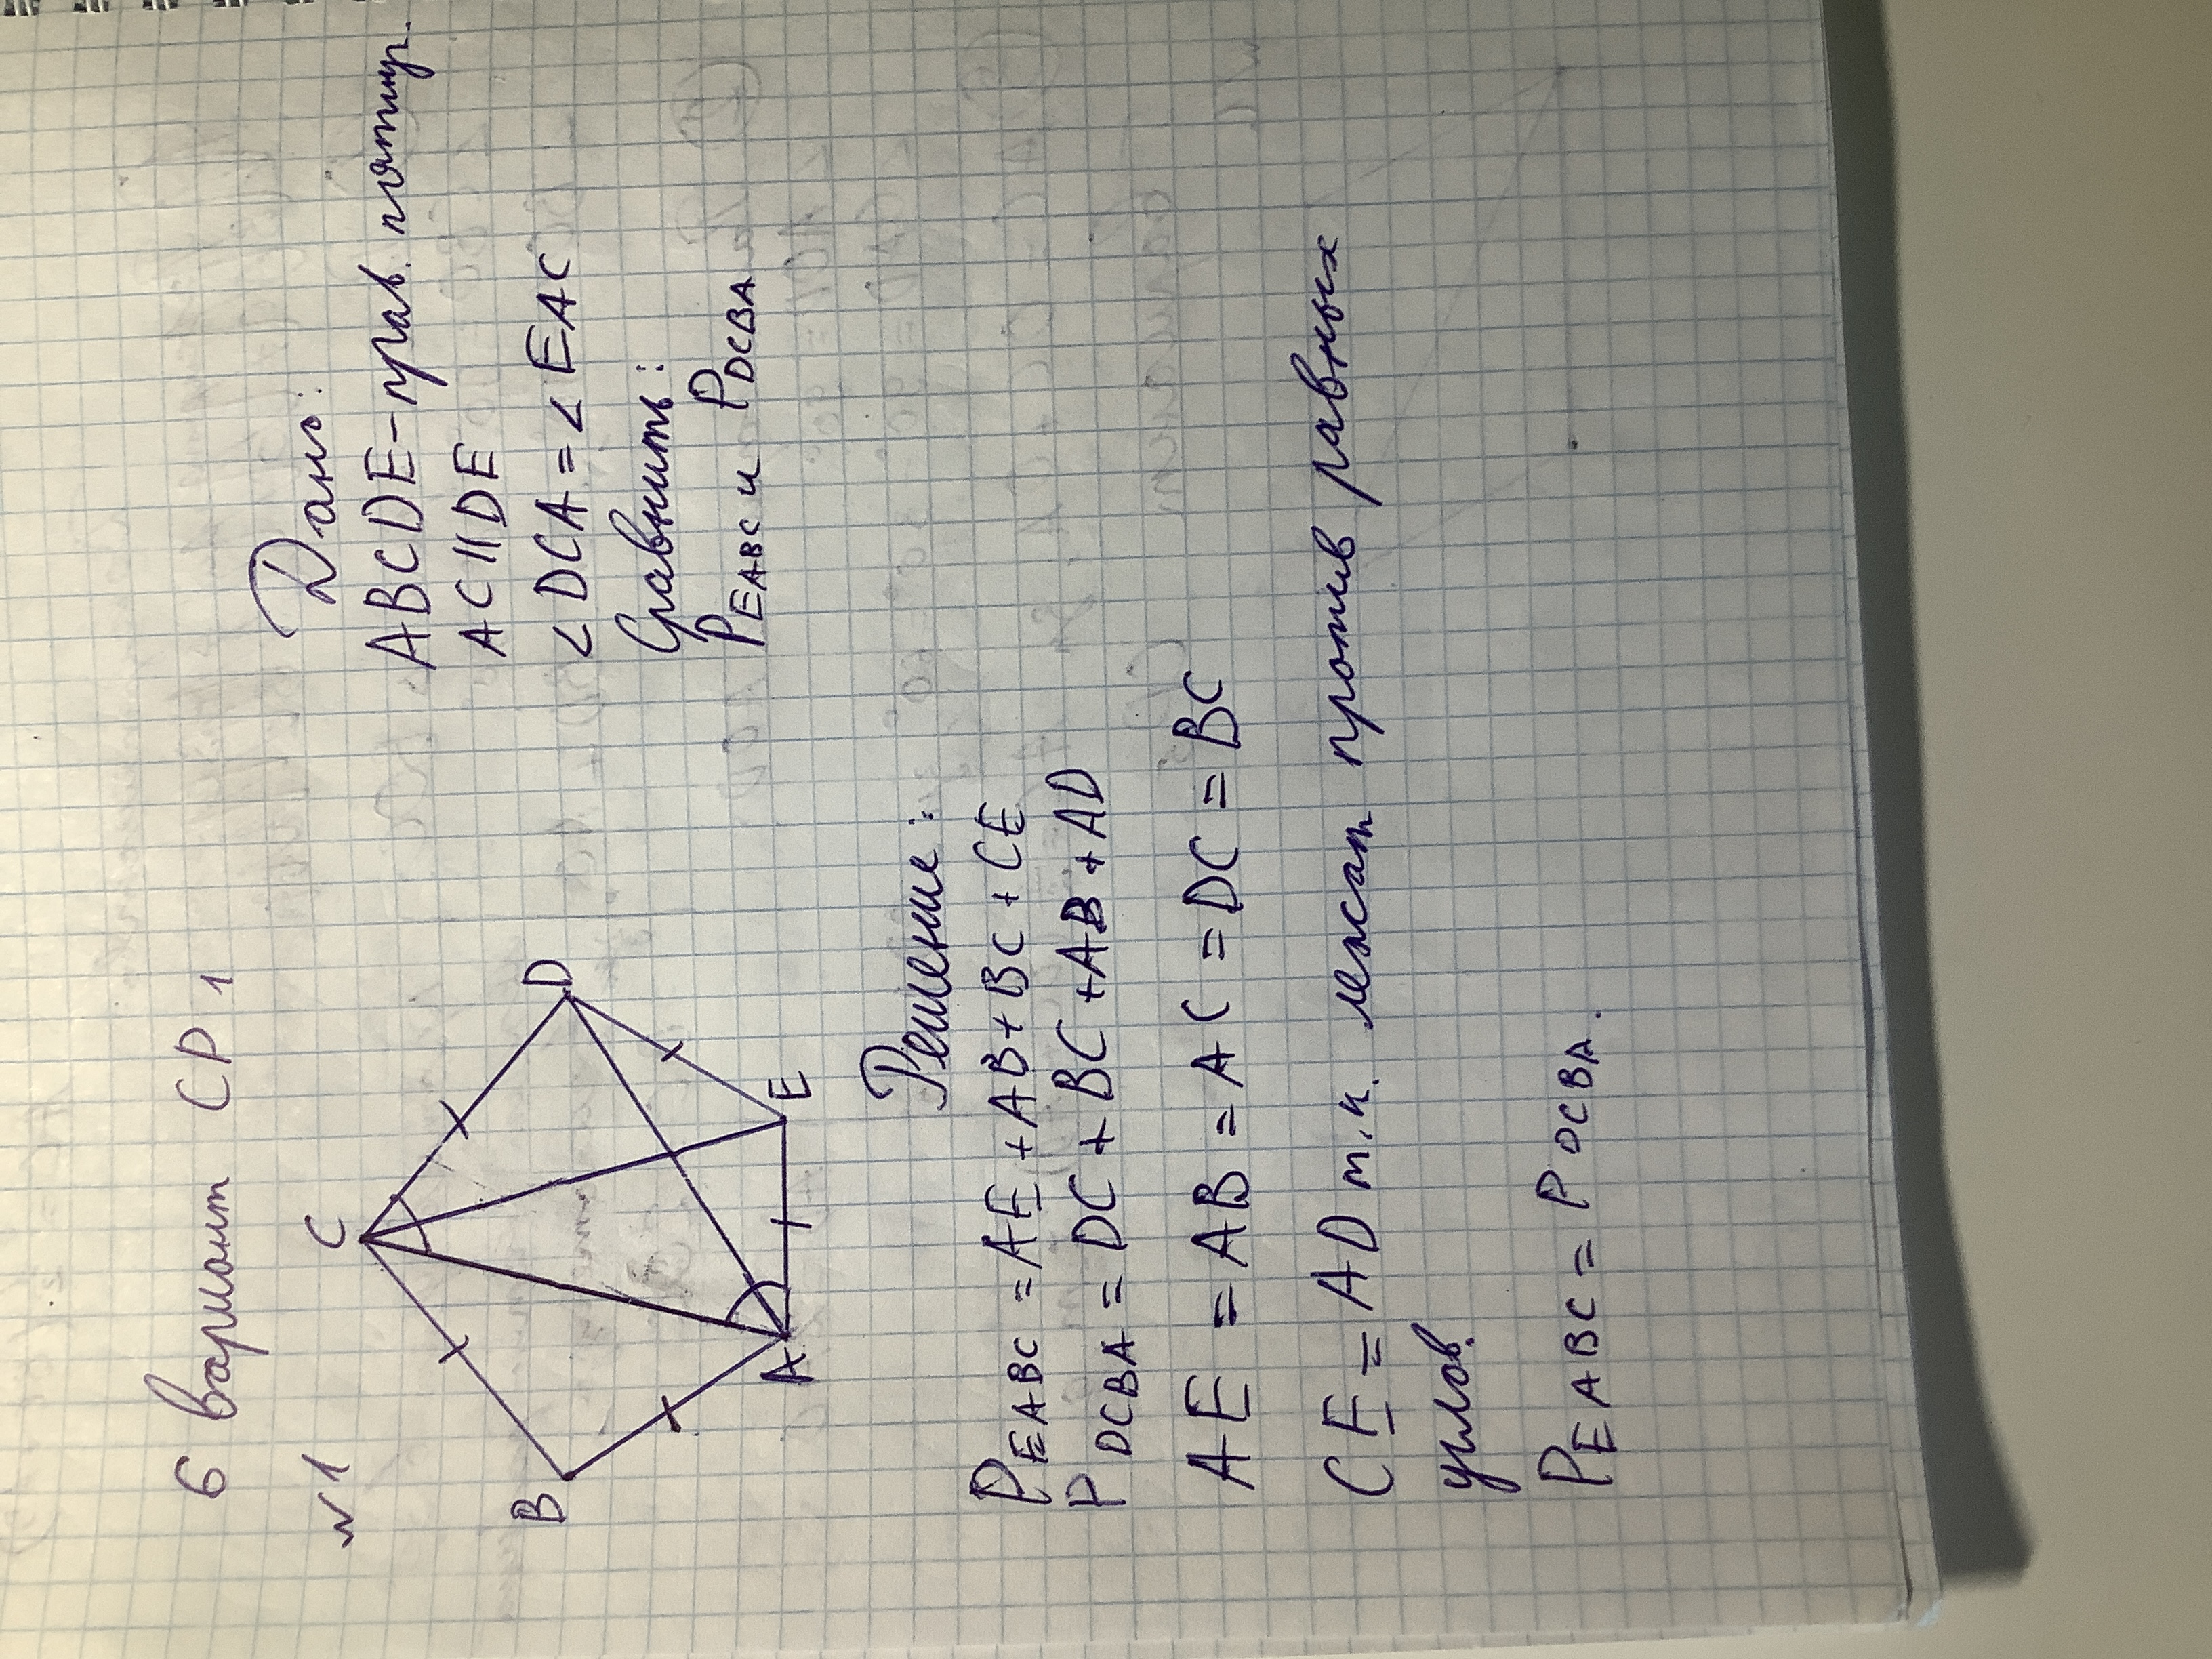 6 вариант СР 1
№1
C
B
D
A
E
Дано:
ABCDE – прав. пятиуг.
AC || DE
∠DCA = ∠EAC
Сравнить:
P EABC и P DCBA
Решение:
P EABC = AE + AB + BC + CE
P DCBA = DC + BC + AB + AD
AE = AB = AC = DC = BC
CE = AD т.к. лежат против равных
углов.
P EABC = P DCBA.